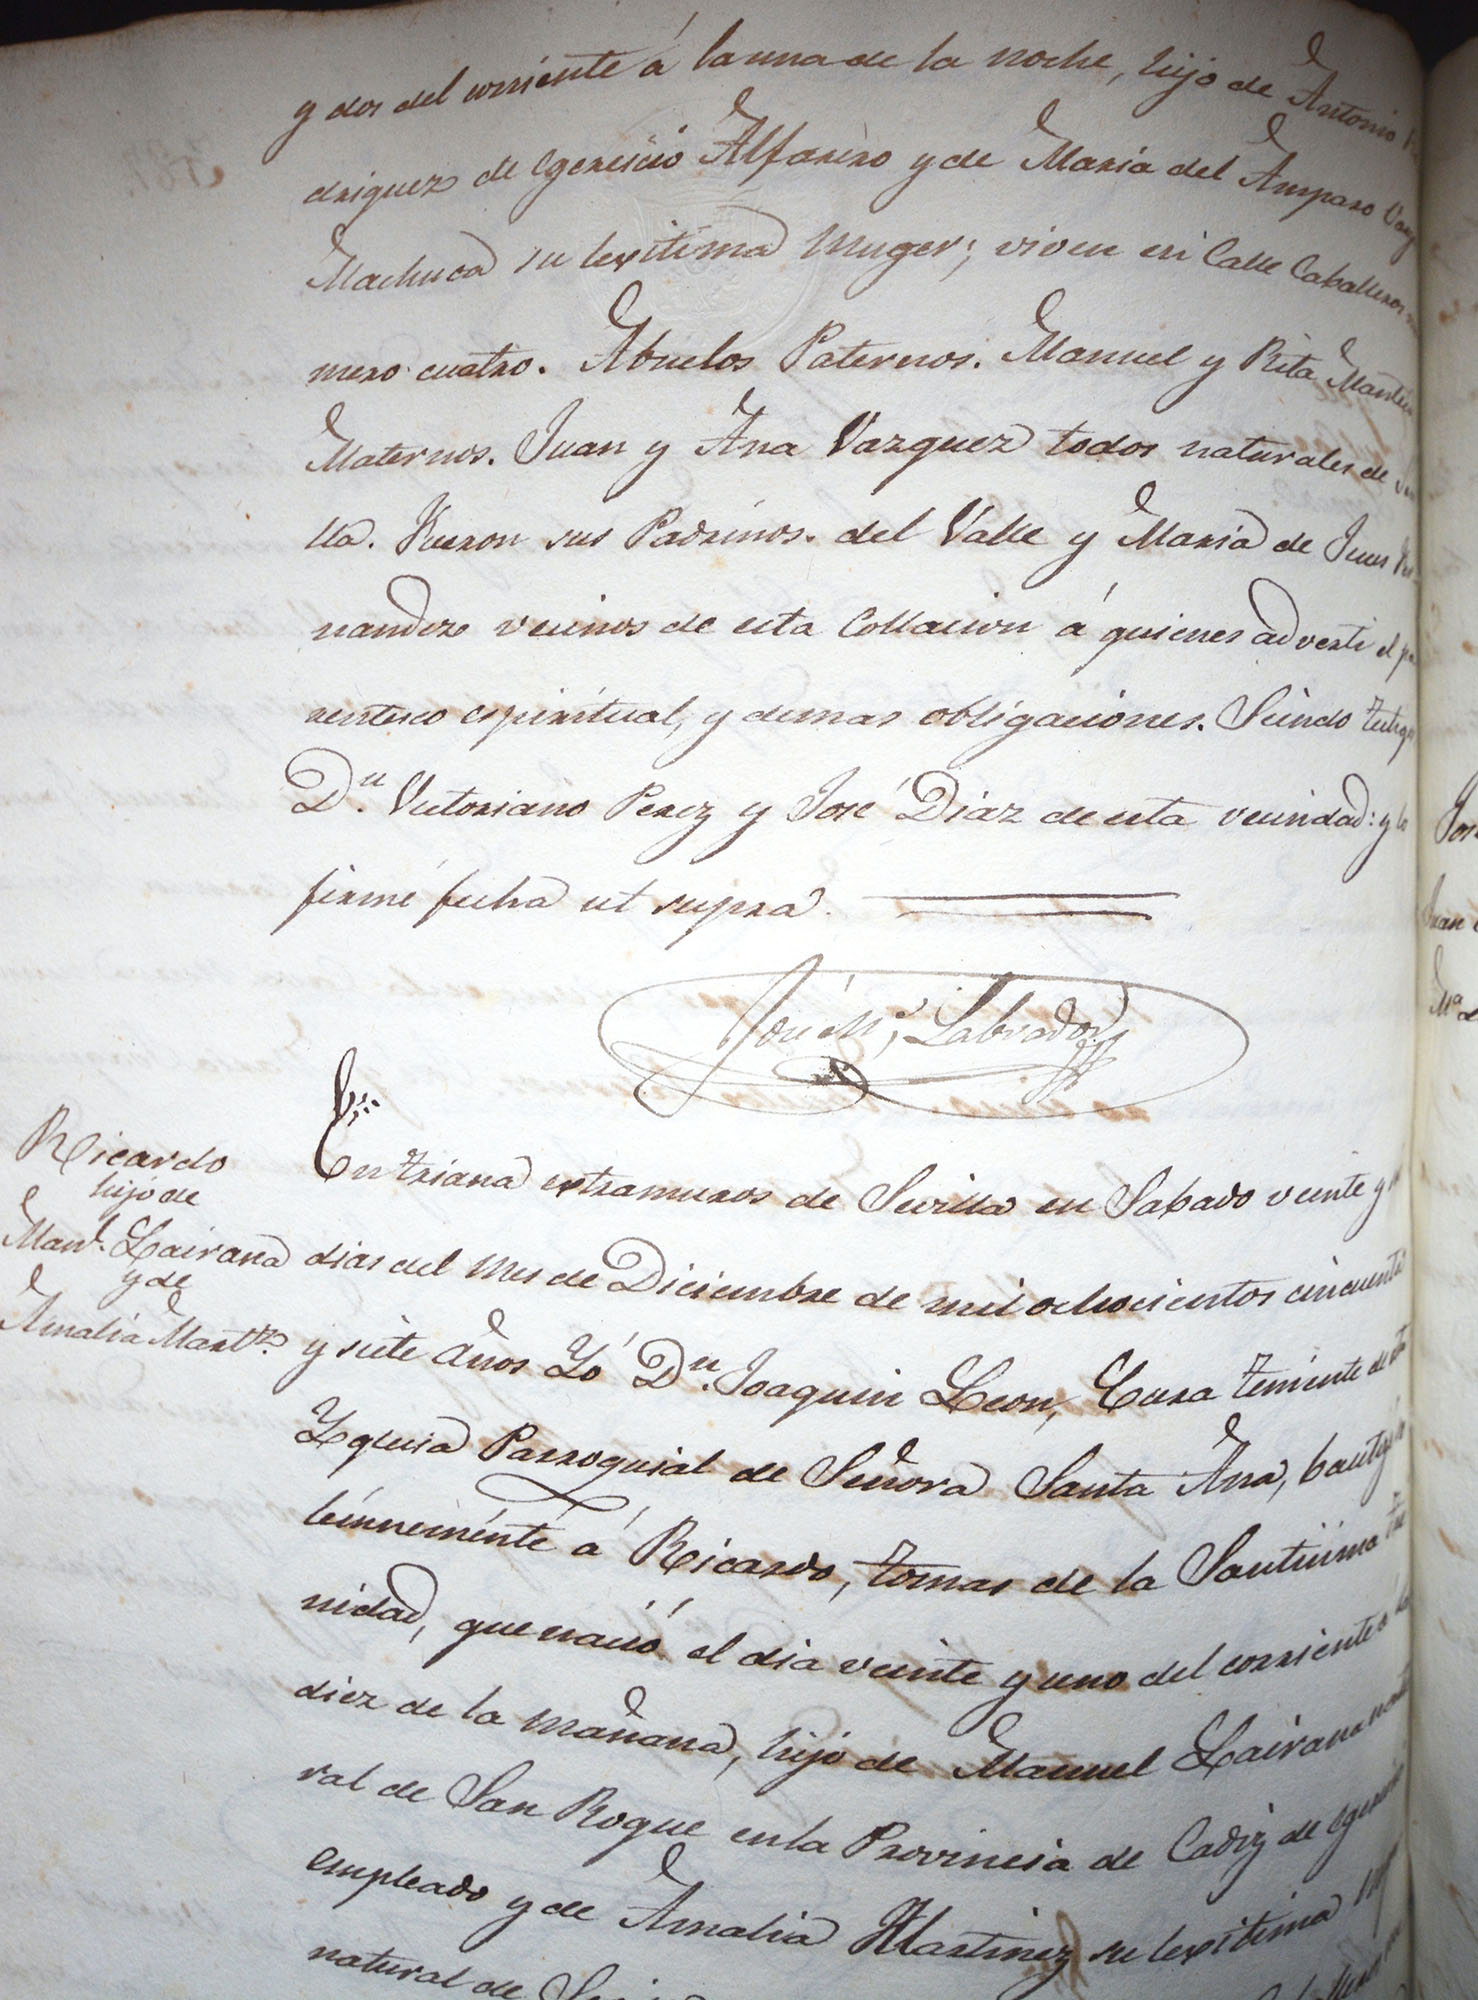 y dos del corriente á la una de la noche, hijo de Antonio
driguez de egercicio Alfarero y de Maria del Amparo
Machuca su lexitima Muger; viven en Calle Caballeros
mero cuatro. Abuelos Paternos. Manuel y Rita
Maternos. Juan y Ana Vazquez todos naturales de
lla. Fueron sus Padrinos. del Valle y Maria de Jesus
nandez vecinos de esta Collacion á quienes adverti el pa
rentesco espiritual, y demas obligaciones. Siendo testigos
Dn. Victoriano Perez y José Diaz de esta vecindad: y lo
firmé fecha ut supra.
José Ma. Labrador
En Triana extramuros de Sevilla en Sabado veinte y
Ricardo
hijo de
Manl. Lairana
y de
Amalia Martz.
dias del Mes de Diciembre de mil ochocientos cincuenta
y siete años Yó Dn. Joaquin Leon, Cura teniente de
Yglesia Parroquial de Señora Santa Ana, bautizé
lemnemente á Ricardo, tomas de la Santisima Tri
nidad, que nació el dia veinte y uno del corriente á las
diez de la Mañana, hijo de Manuel Lairana natu
ral de San Roque en la Provincia de Cadiz de egercicio
empleado y de Amalia Martinez su lexitima
natural de